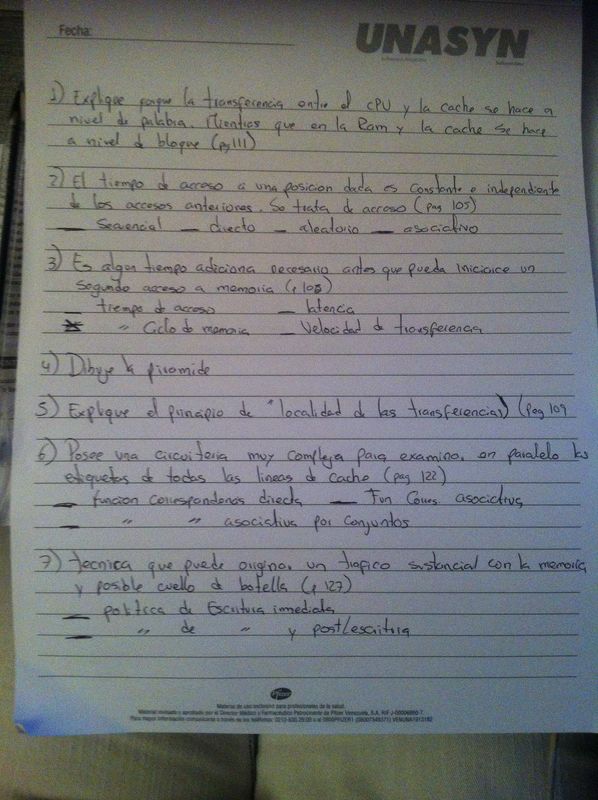 Fecha:
UNASYN
1) Explique porque la transferencia entre el CPU y la cache se hace a
nivel de palabra. Mientras que en la Ram y la cache se hace
a nivel de bloque (pg 111)
2) El tiempo de acceso a una posicion dada es constante e independiente
de los accesos anteriores. Se trata de acceso (pag 105)
— Secuencial — directo — aleatorio — asociativo
3) Es algun tiempo adiciona necesario antes que pueda iniciarce un
segundo acceso a memoria (p 105)
— tiempo de acceso — latencia
" Ciclo de memoria — Velocidad de transferencia
4) Dibuje la piramide
5) Explique el principio de "localidad de las transferencias) (pag 109
6) Posee una circuiteria muy compleja para examinar en paralelo las
etiquetas de todas las lineas de cache (pag 122)
— funcion correspondencia directa — Fun Corres. asociativa
— " " asociativa por conjuntos
7) tecnica que puede originar un trafico sustancial con la memoria
y posible cuello de botella (p 127)
— politica de Escritura inmediata
— " de " y post/escritura
Pfizer
Material de uso exclusivo para profesionales de la salud.
Material revisado y aprobado por el Director Médico y Farmacéutico Patrocinante de Pfizer Venezuela, S.A. RIF J-00006660-7.